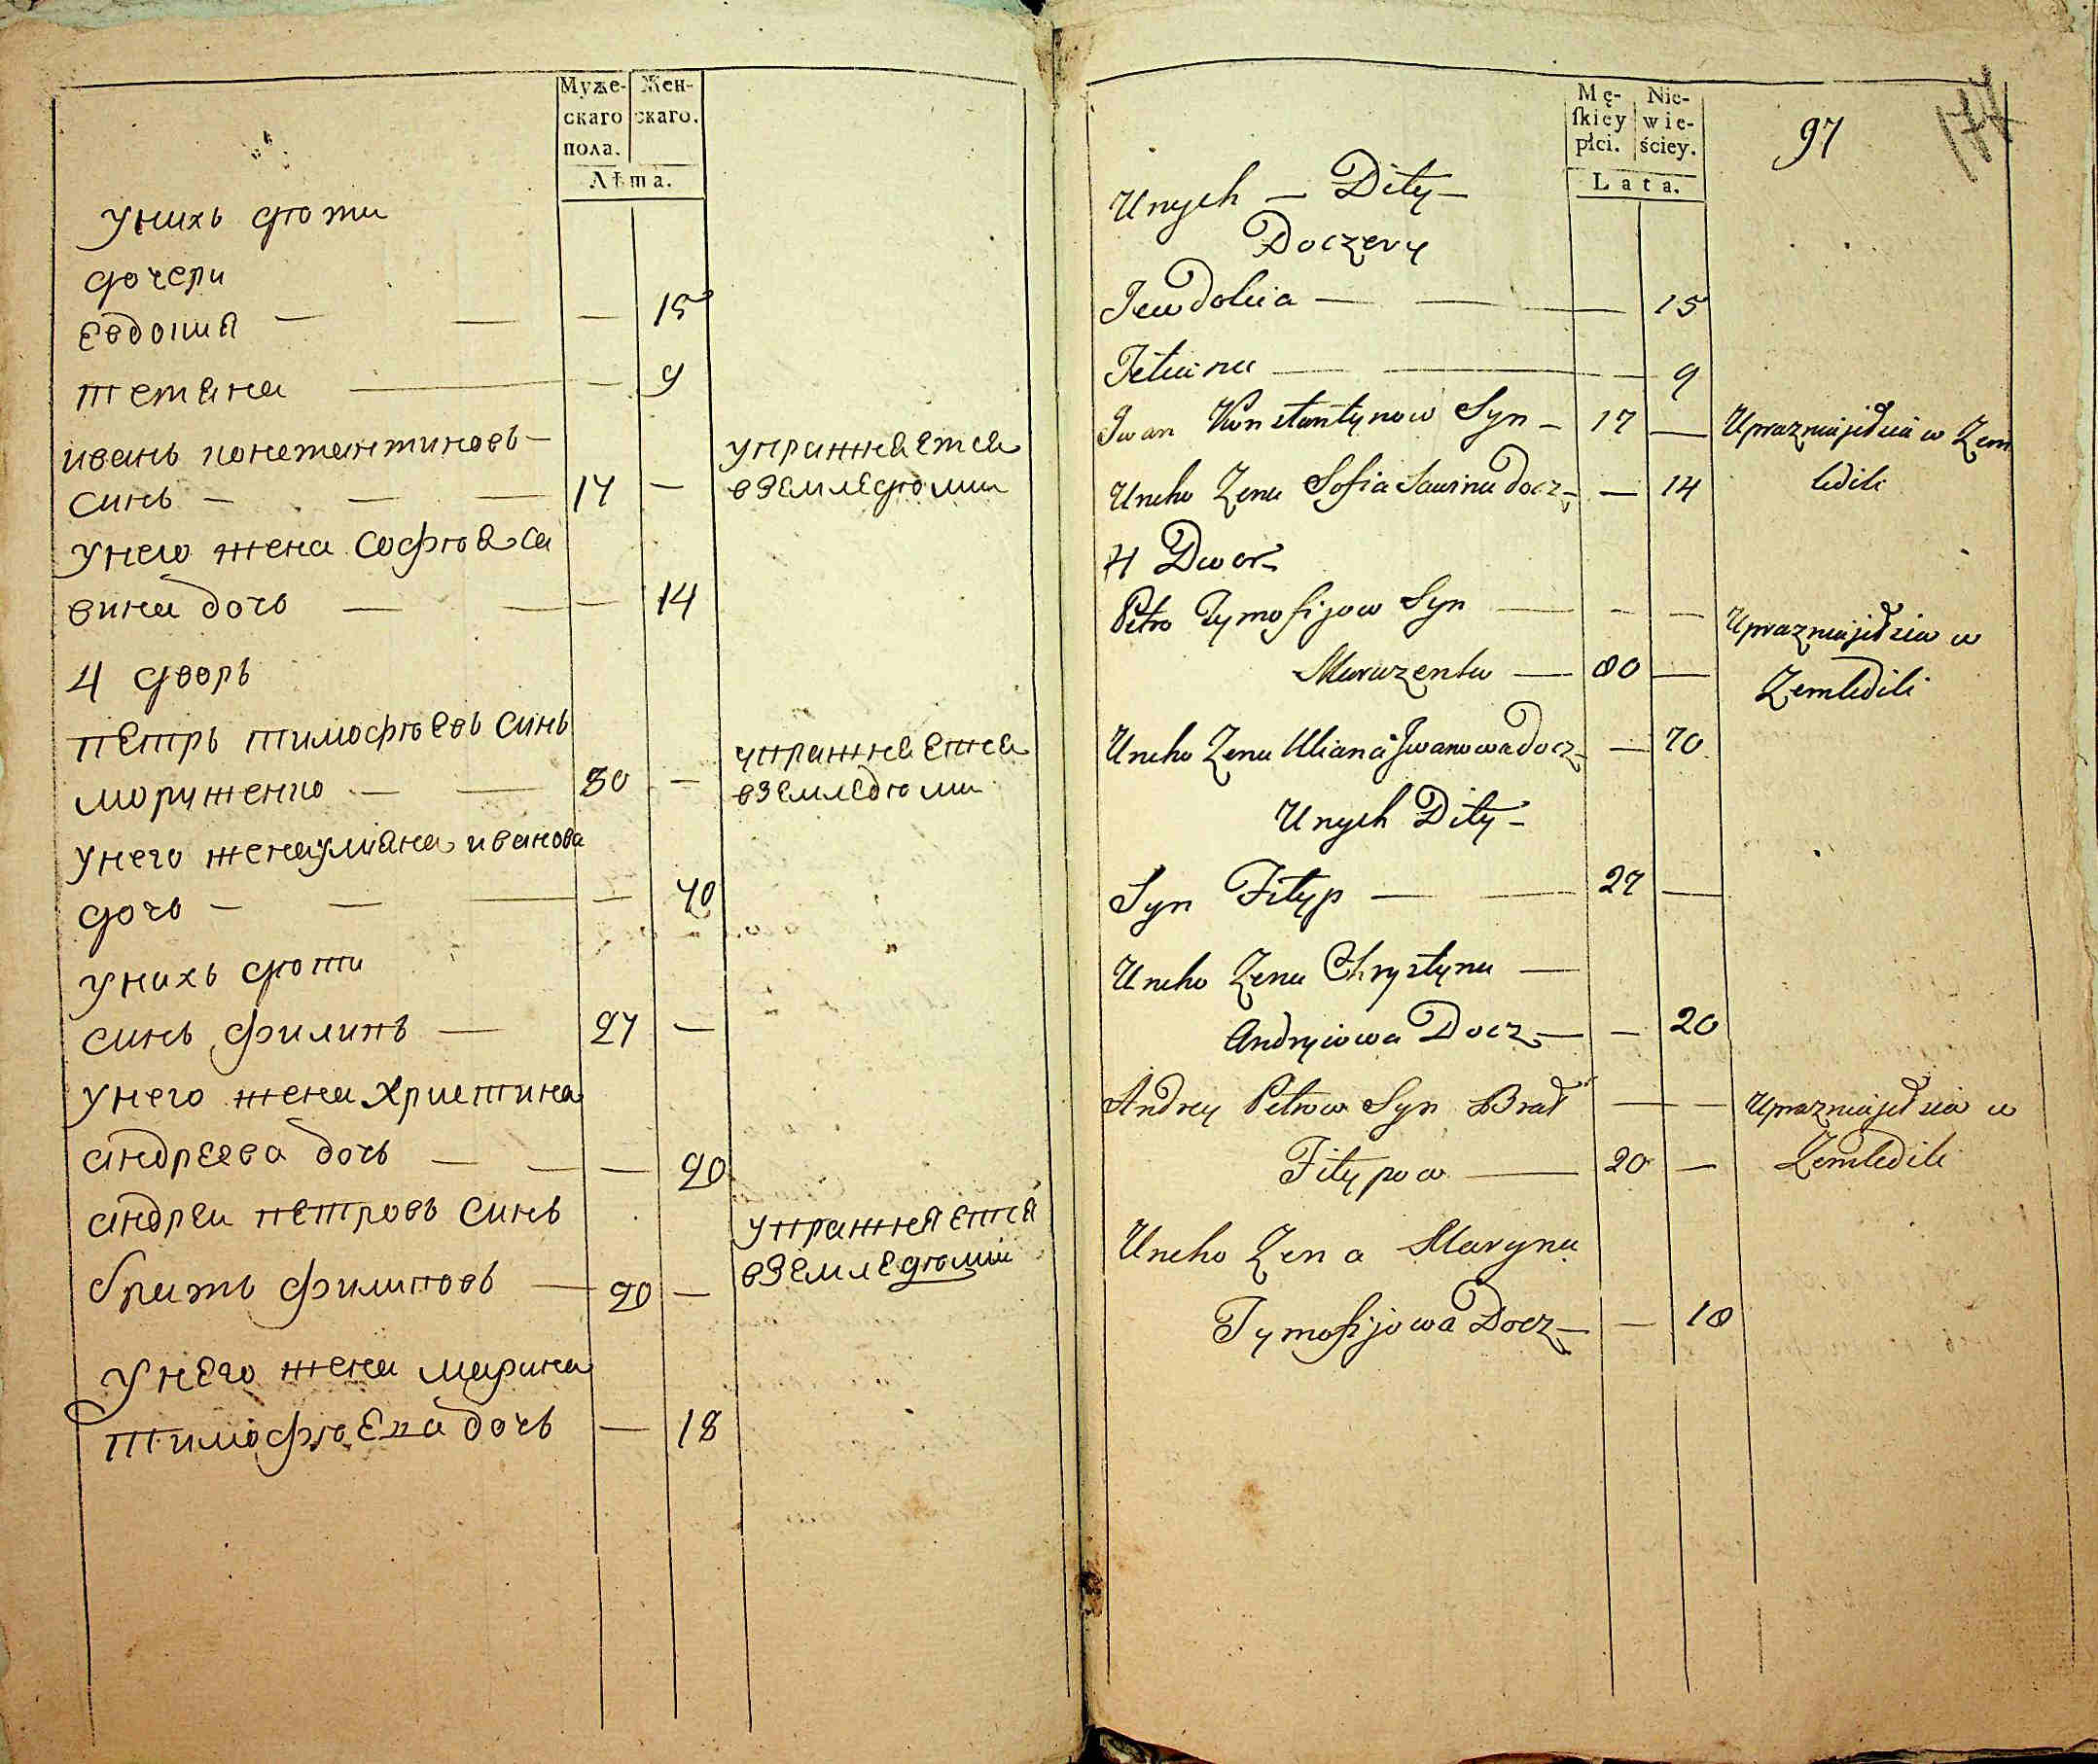 Муже- Жен-
скаго скаго.
пола.
Лѣта.
унихъ дѣти
дочери
евдокия — — — 15
тетяна — — 9
иванъ константиновъ —
синъ — — — 17 —
упражняется
вземледѣлии
унего жена софѣя са
вина дочь — — — 14
4 дворъ
петръ тимофѣевъ синъ
моруженко — — 80 —
упражняется
вземледѣлии
унего жена улияна иванова
дочь — — — — 70
унихъ дѣти
синъ филипъ — 27 —
унего жена христина
андреева дочь — — — 20
андреи петровъ синъ
братъ филиповъ — 20 —
упражняется
вземледѣлии
унего жена марина
тимофѣева дочь — 18
Mę- Nie-
ſkiey wie-
płci. ściey.
Lata.
97
174
Unych — Dity —
Doczery
Jewdokia — — — 15
Tetiana — — — 9
Iwan Konstantynow Syn — 17 — Uprazniajetsia w Zem
Uneho Zena Sofia Sawina Docz — — 14 ledili
4 Dwor
Petro Tymofijow Syn — - — Uprazniajetsia w
Maruzenko — 80 — Zemledili
Uneho Zena Uliana Iwanowa Docz — — 70
Unych Dity —
Syn Fityp — — 27 —
Uneho Zena Chrystyna —
Andryiowa Docz — — 20
Andrey Petrow Syn Brat — — Uprazniajetsia w
Fitypow — 20 — Zemledili
Uneho Zena Maryna
Tymofijowa Docz — — 18